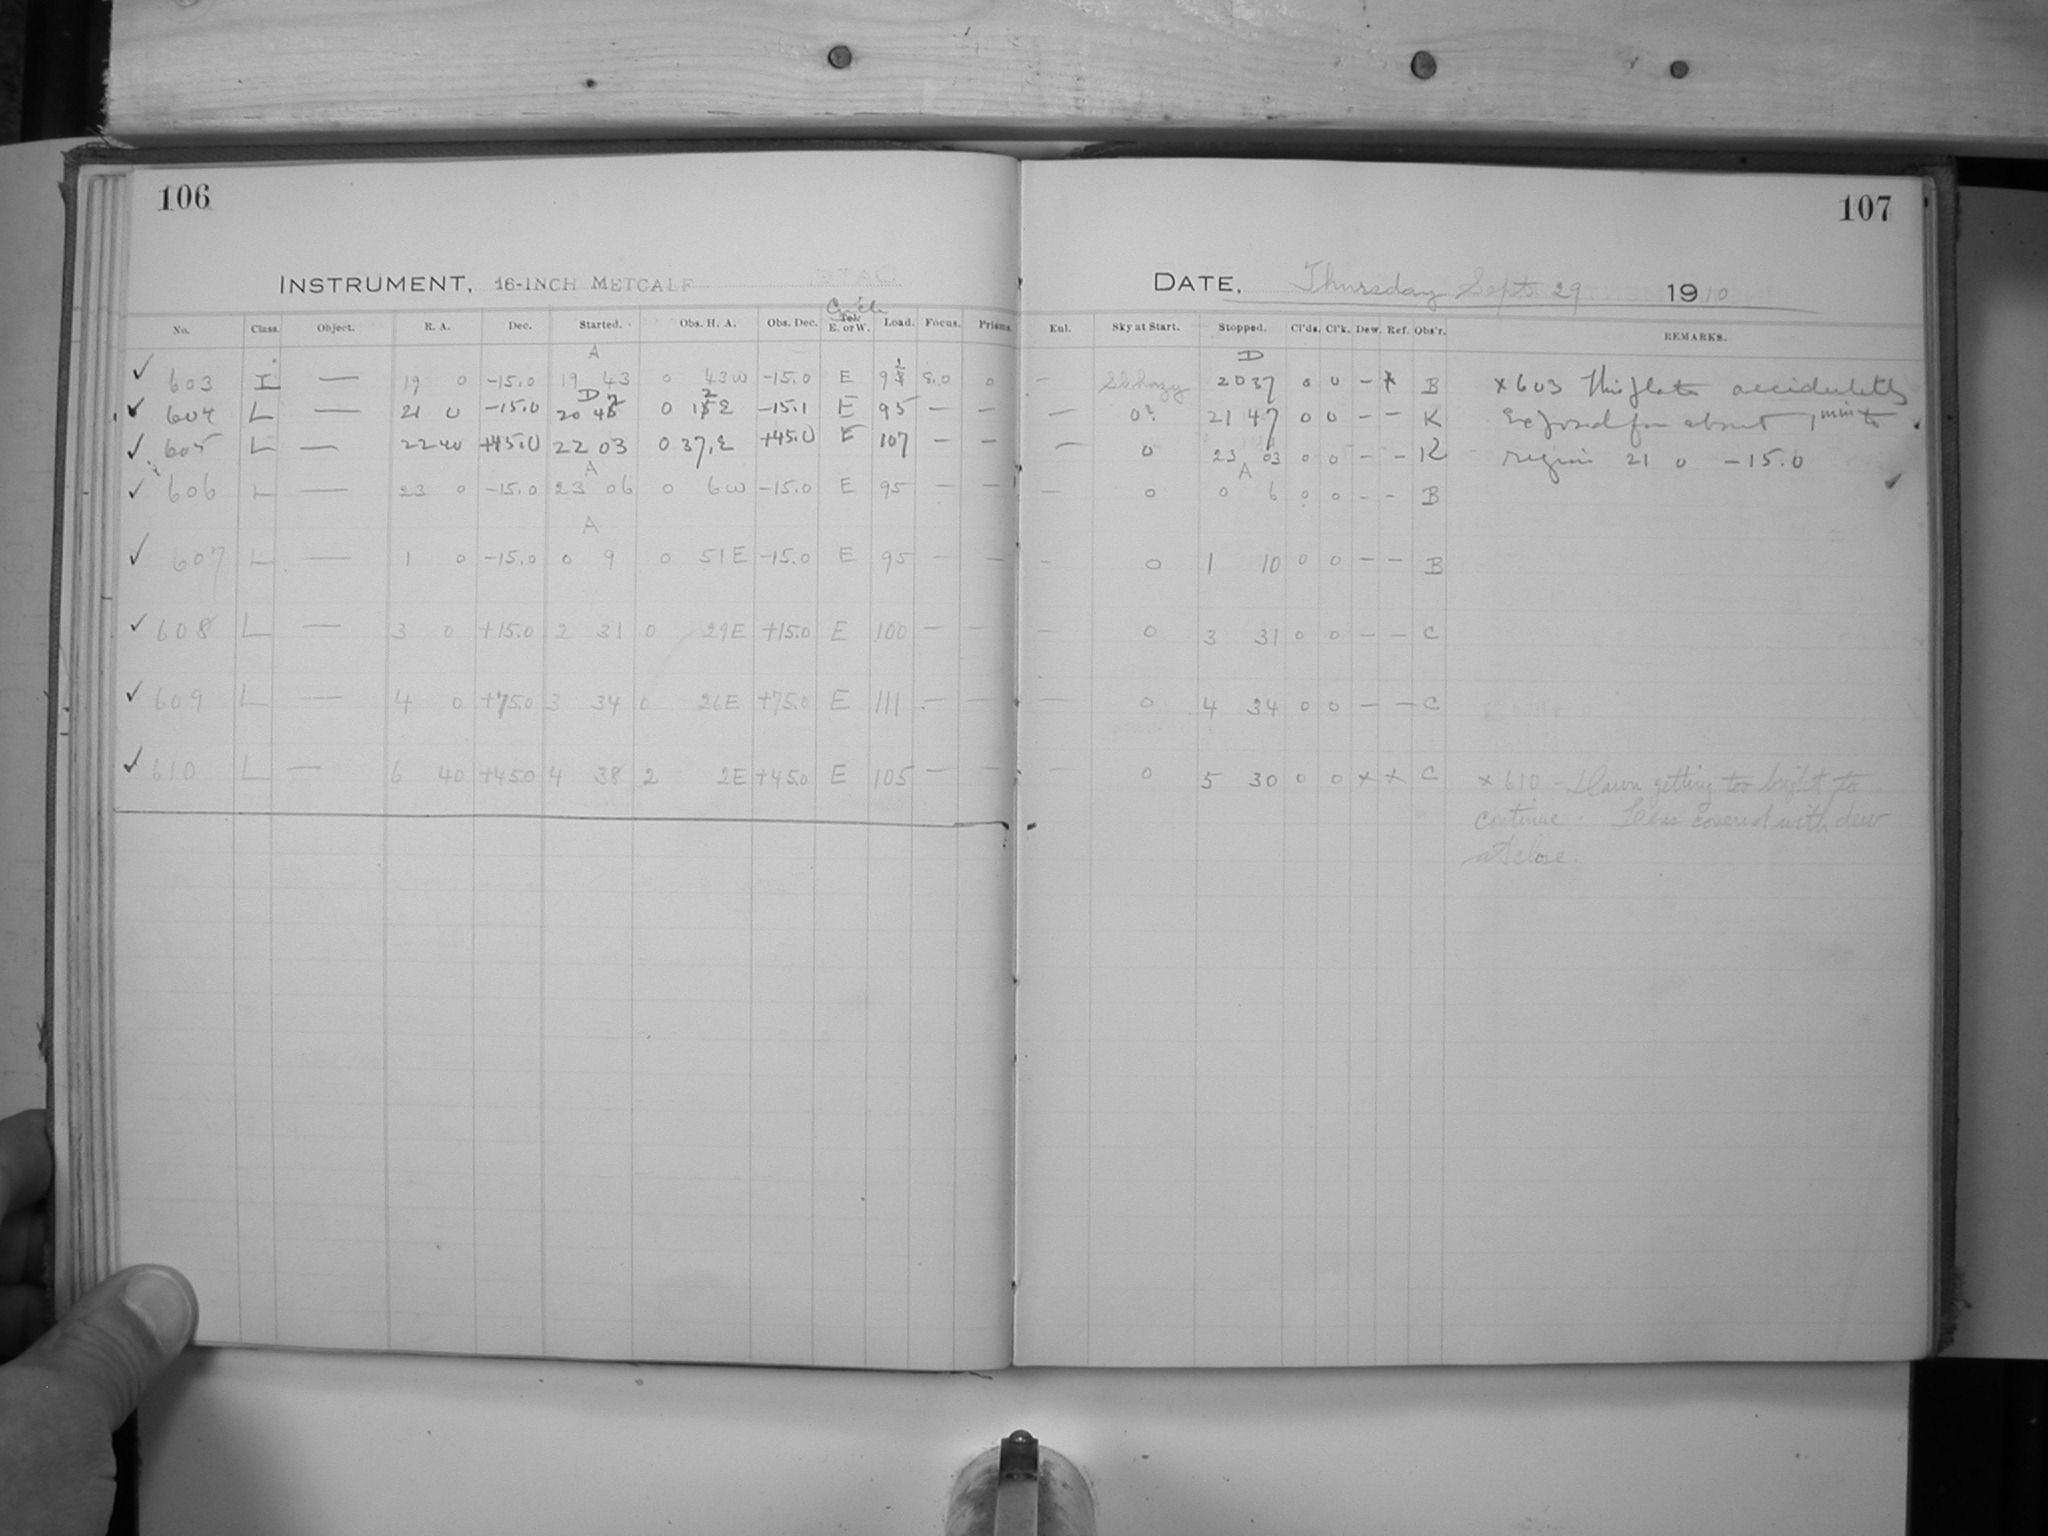 106
107
INSTRUMENT, 16-INCH METCALF
DATE, Thursday Sept. 29 1910
Circle
No. Class. Object. R. A. Dec. Started. Obs. H. A. Obs. Dec. Tel. E. or W. Load. Focus. Prisms. Enl. Sky at Start. Stopped. Cl'ds. Cl'k. Dew. Ref. Obs'r. REMARKS.
A D
✓ 603 I — 19 0 -15.0 19 43 0 43W -15.0 E 8.0 0 — Sl. hazy 20 37 0 0 — x B x603 This plate accidentally
D
✓ 604 L — 21 0 -15.0 20 0 -15.1 E 95 — — — 0? 21 47 0 0 — — K Exposed for about 1 minute
✓ 605 L — 22 40 +45.0 22 03 0 37.E +45.0 E 107 — — — 0 23 03 0 0 — — K region 21 0 -15.0
A A
✓ 606 L — 23 0 -15.0 23 06 0 6W -15.0 E 95 — — — 0 0 6 0 0 — — B
A
✓ 607 L — 1 0 -15.0 0 9 0 51E -15.0 E 95 — — — 0 1 10 0 0 — — B
✓ 608 L — 3 0 +15.0 2 31 0 29E +15.0 E 100 — — — 0 3 31 0 0 — — C
✓ 609 L — 4 0 +75.0 3 34 0 26E +75.0 E 111 — — — 0 4 34 0 0 — — C
✓ 610 L — 6 40 +45.0 4 38 2 2E +45.0 E 105 — — — 0 5 30 0 0 x x C x 610 - Dawn getting too bright to
continue. Lens covered with dew
at close.